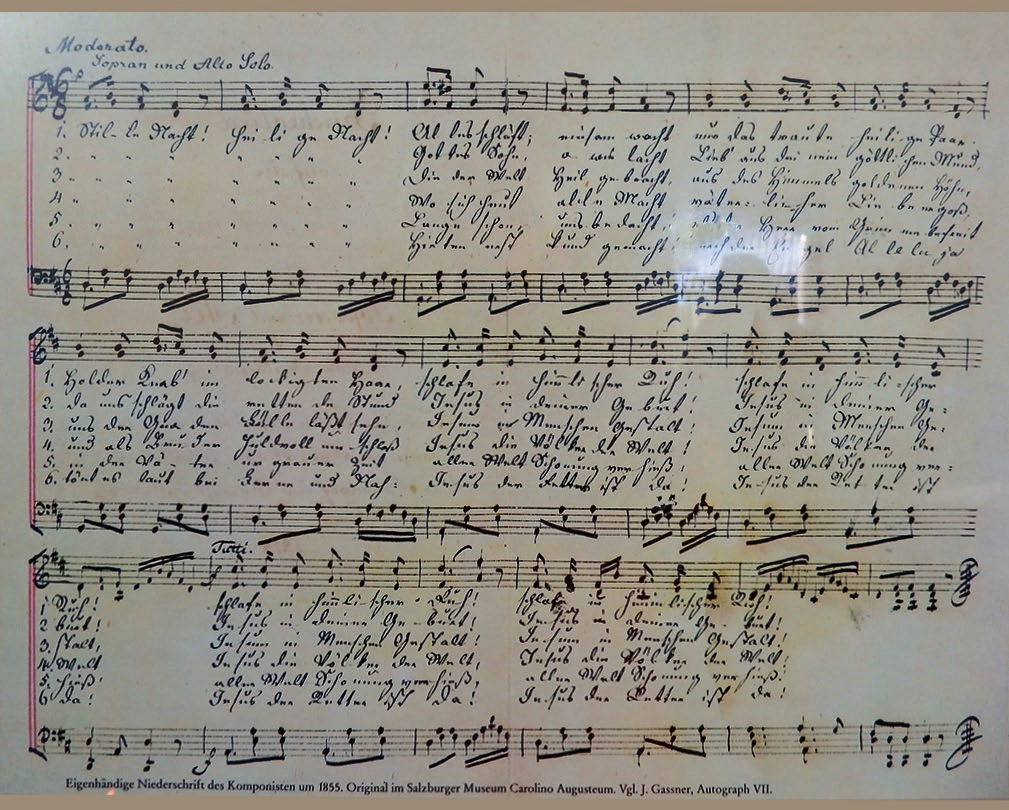 Moderato.
Sopran und Alto Solo.
1. Stil- le Nacht! Hei- li ge Nacht! Al les schläft; einsam wacht nur das traute heili- ge Paar.
2. " " " " " " " Gottes Sohn, o wie lacht Lieb' aus dei nem göttli chen Mund,
3. " " " " " " " Die der Welt Heil ge- bracht, aus des Himmels goldenen Höhn,
4. " " " " " " " Wo sich heut alle Macht väter- li- cher Lie be ergoß,
5. " " " " " " " Lange schon, uns bedacht, Herr vom Grimme befreit
6. " " " " " " " Hirten erst kund gemacht! durch der Engel Al le lu ja
1. Holder Knab' im lockigten Haar, schlafe in himmli scher Ruh! schlafe in himm- li- scher
2. da uns schlägt die retten de Stund Jesus in deiner Ge- burt! Jesus in deiner Ge-
3. uns der Gna den Fülle läßt sehn, Jesum in Menschen Gestalt! Jesum in Menschen Ge-
4. und als Bru der huldvoll um- schloß Jesus die Völker der Welt! Jesus die Völker der
5. in der Vä- ter ur grauer Zeit aller Welt Schonung ver hieß! aller Welt Scho nung ver-
6. tönt es laut bei Ferne und Nah: Je- sus der Retter ist da! Je- sus der Ret ter ist
Tutti.
1 Ruh! schlafe in himmli- scher Ruh! schlafe in himmlischer Ruh!
2 burt! Je- sus in deiner Ge- burt! Je- sus in deiner Ge- burt!
3. stalt! Je- sum in Menschen Gestalt! Je- sum in Menschen Gestalt!
4. Welt Jesus die Völ- ker der Welt, Jesus die Völ- ker der Welt!
5. hieß! aller Welt Scho nung ver hieß, aller Welt Scho nung ver hieß!
6 da! Jesus der Retter ist da! Jesus der Retter ist da!
Eigenhändige Niederschrift des Komponisten um 1855. Original im Salzburger Museum Carolino Augusteum. Vgl. J. Gassner, Autograph VII.